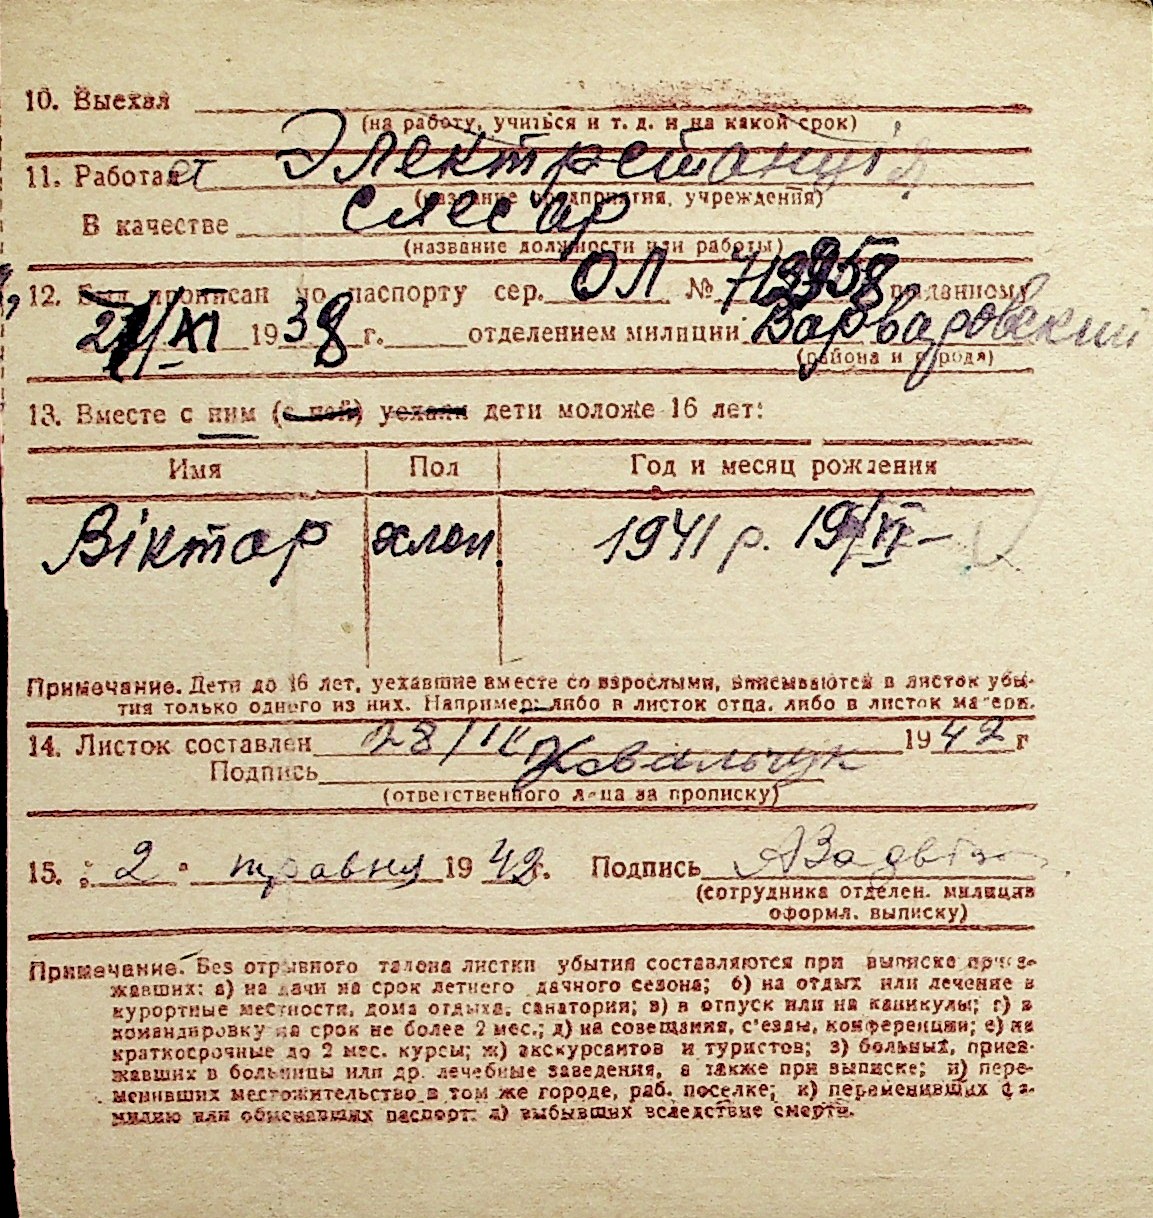 10. Выехал
(на работу, учиться и т. д. и на какой срок)
11. Работает Электростанція
(название предприятия, учреждения)
В качестве слесар
(название должности или работы)
12. Был прописан по паспорту сер. ОЛ № выданному
XI 1938 г. отделением милиции Варваровский
(района и города)
13. Вместе с ним (с ней) уехали дети моложе 16 лет:
Имя Пол Год и месяц рождения
Віктор хлоп. 1941 р. 19/VI
Примечание. Дети до 16 лет, уехавшие вместе со взрослыми, вписываются в листок убы-
тия только одного из них. Например: либо в листок отца, либо в листок матери.
14. Листок составлен 28/IV 1942 г
Подпись Ковальчук
(ответственного лица за прописку)
15. " 2 " травня 1942 г. Подпись
(сотрудника отделен. милиции
оформл. выписку)
Примечание. Без отрывного талона листки убытия составляются при выписке приез-
жавших: а) на дачи на срок летнего дачного сезона; б) на отдых или лечение в
курортные местности, дома отдыха, санатории; в) в отпуск или на каникулы; г) в
командировку на срок не более 2 мес.; д) на совещания, с'езды, конференции; е) на
краткосрочные до 2 мес. курсы; ж) экскурсантов и туристов; з) больных, приез-
жавших в больницы или др. лечебные заведения, а также при выписке; и) пере-
менивших местожительство в том же городе, раб. поселке; к) переменивших фа-
милию или обменявших паспорт; л) выбывших вследствие смерти.